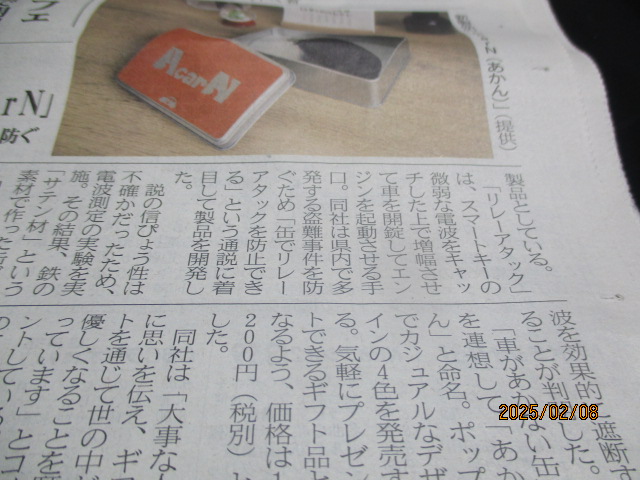 フェ
rN」
防ぐ
AcarN
N（あかん）」（提供）
製品としている。
「リレーアタック」
は、スマートキーの
微弱な電波をキャッ
チした上で増幅させ
て車を開錠してエン
ジンを起動させる手
口。同社は県内で多
発する盗難事件を防
ぐため「缶でリレー
アタックを防止でき
る」という通説に着
目して製品を開発し
た。
説の信ぴょう性は
不確かだったため、
電波測定の実験を実
施。その結果、鉄の
「サテン材」という
素材で作った
波を効果的に遮断す
ることが判明した。
「車があかない缶」
を連想して「あか
ん」と命名。ポップ
でカジュアルなデザ
インの4色を発売す
る。気軽にプレゼン
トできるギフト品と
なるよう、価格は1
200円（税別）と
した。
同社は「大事な人
に思いを伝え、ギフ
トを通じて世の中が
優しくなることを願
っています」とコメ
ントしている
2025/02/08